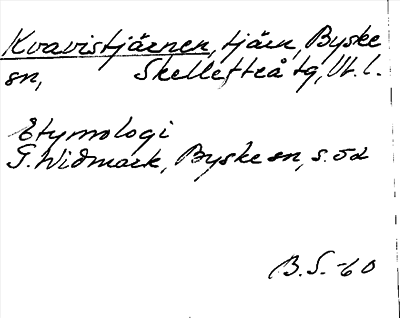 Kvavistjärnen, tjärn, Byske
sn, Skellefteå tg, Vb. l.
Etymologi
G. Widmark, Byske sn, s. 52
B.S. -60